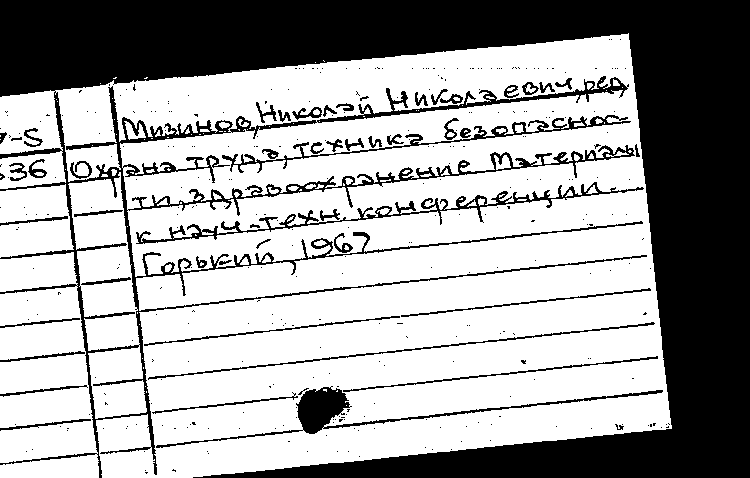 Мизинов, Николай Николаевич, ред.
-S
536 Охрана труда, техника безопаснос-
ти, здравоохранение. Материалы
к науч-техн. конференции.
Горький, 1967